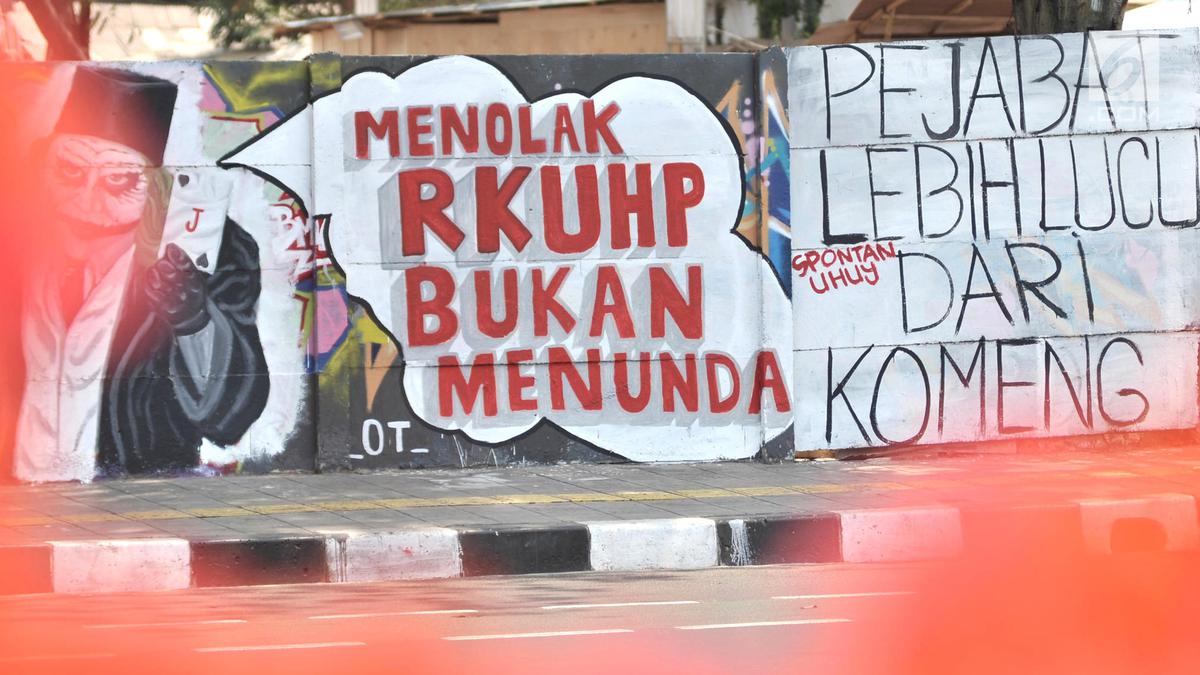 J
MENOLAK
RKUHP
BUKAN
MENUNDA
_OT_
PEJABAT
LEBIH LUCU
SPONTAN
UHUY
DARI
KOMENG
.COM